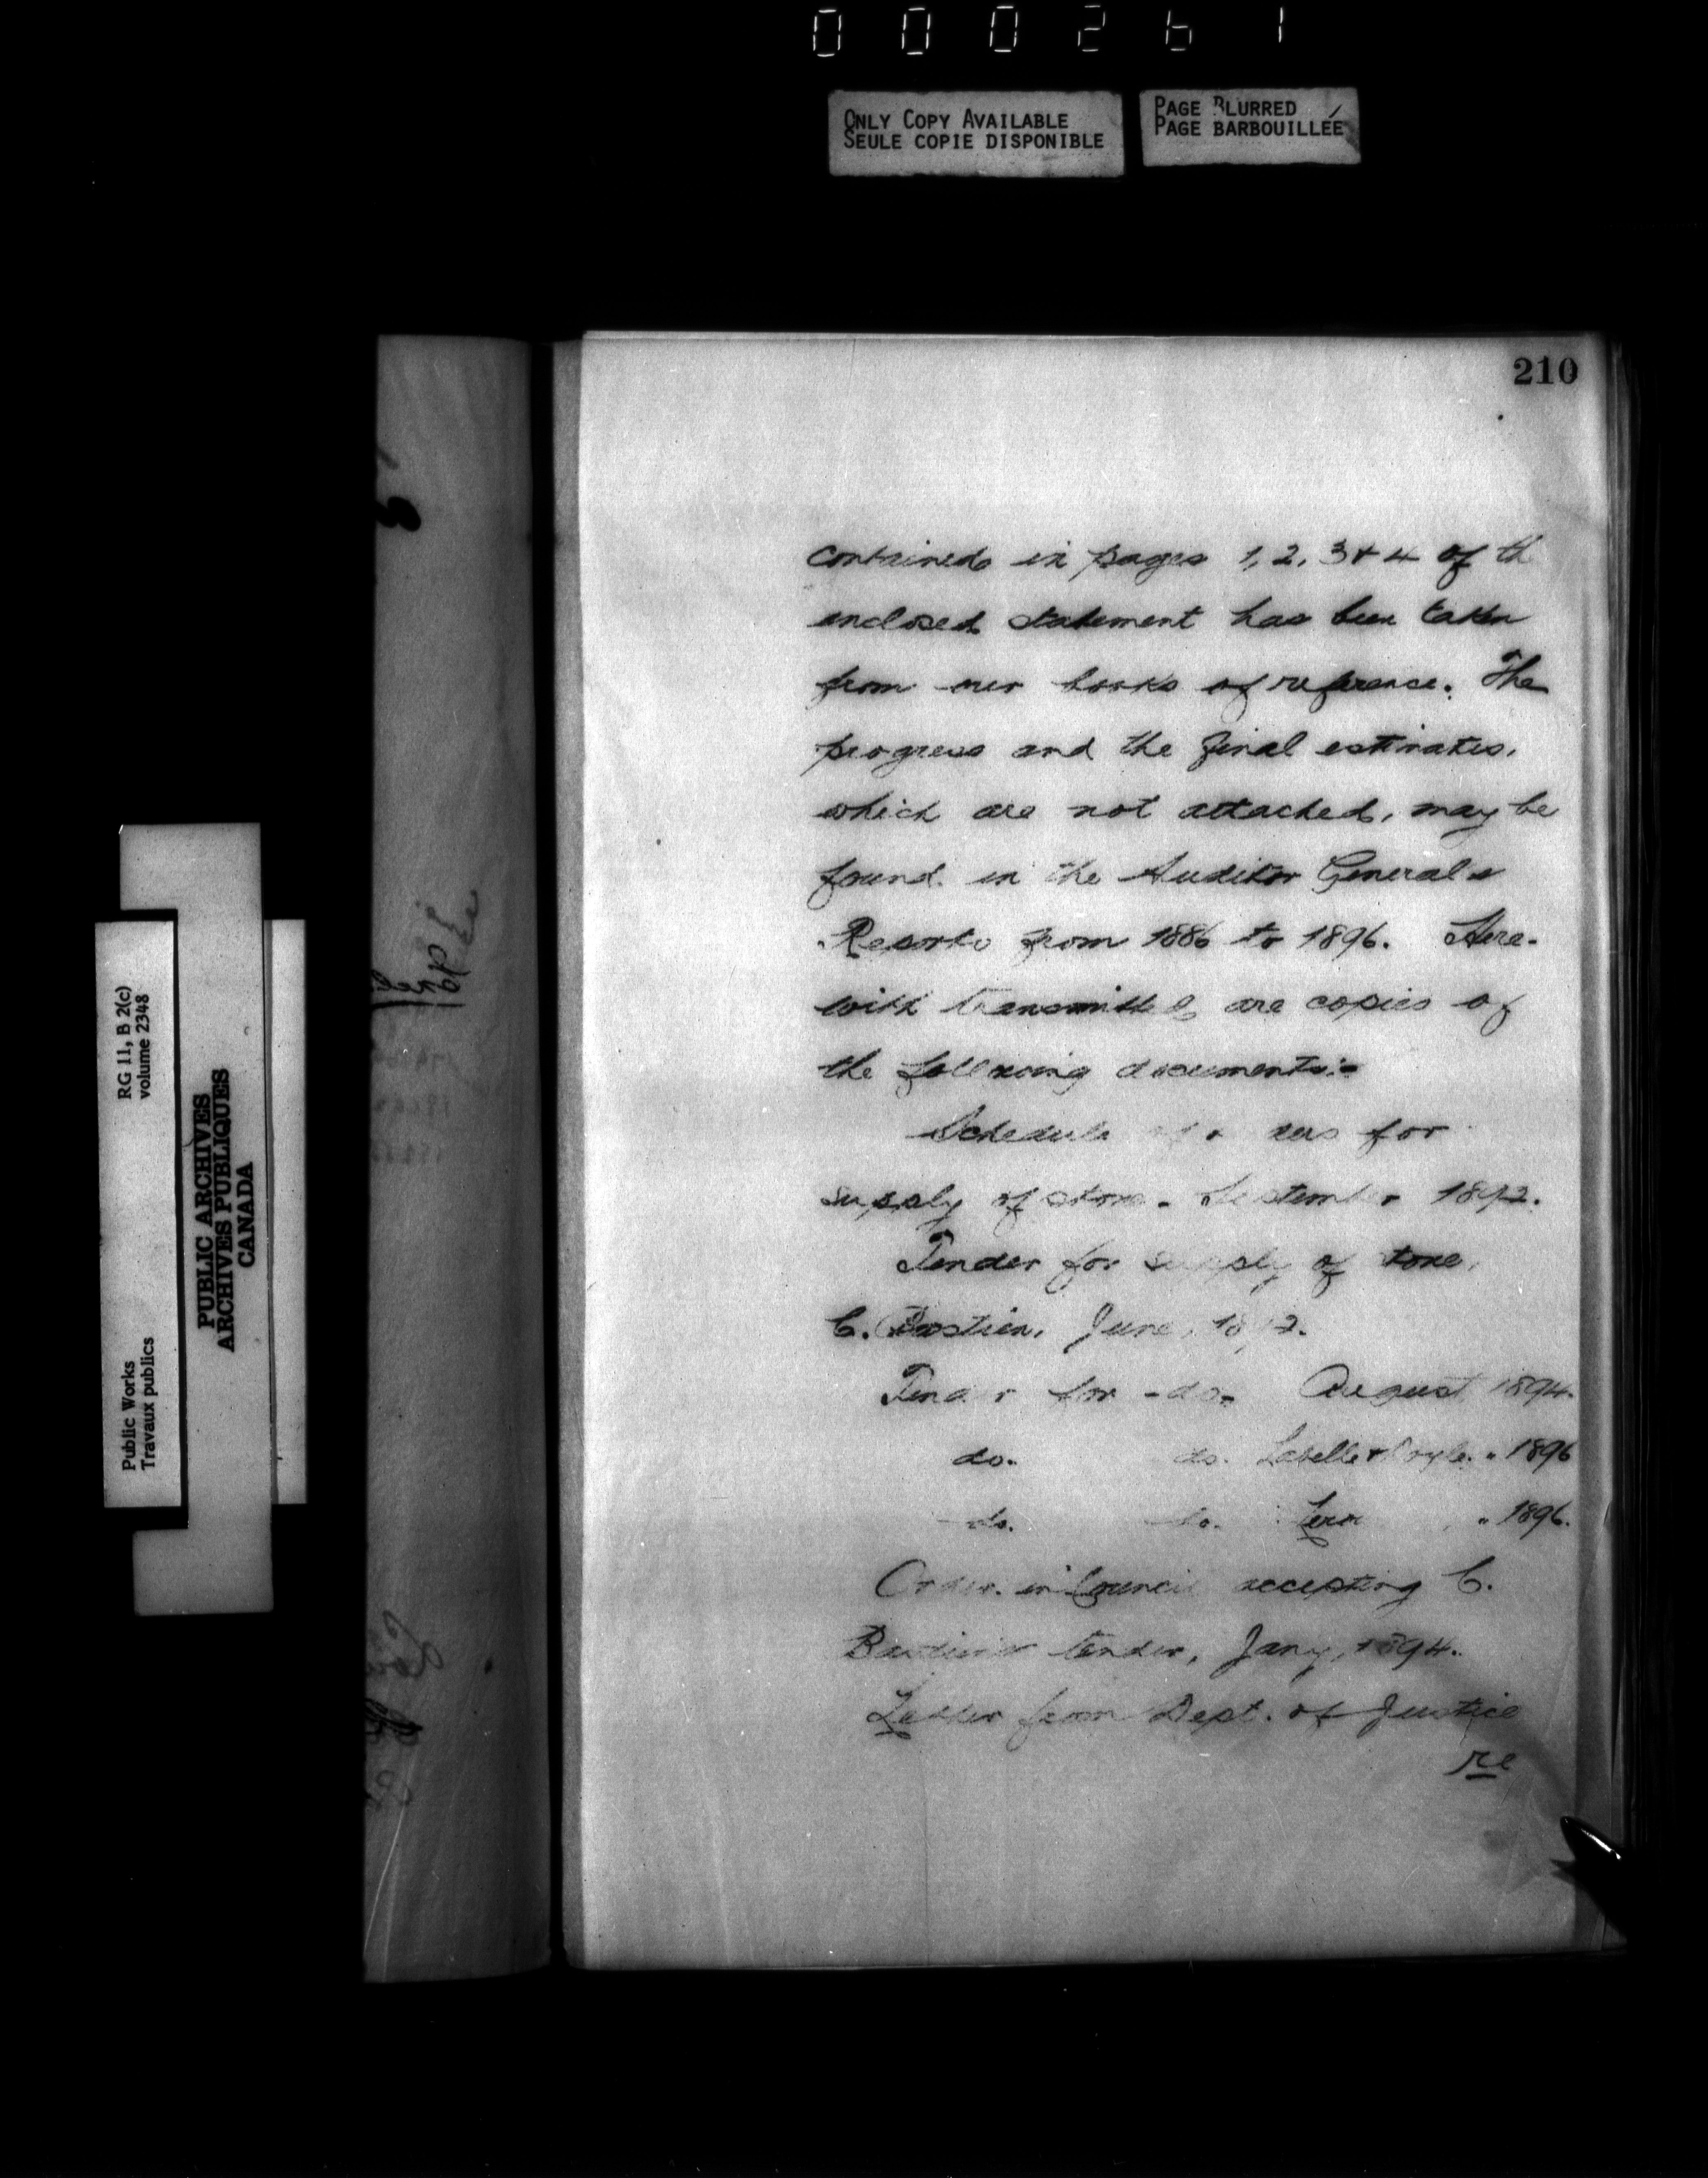 000261
ONLY COPY AVAILABLE
SEULE COPIE DISPONIBLE
PAGE BLURRED
PAGE BARBOUILLÉE
210
contained in pages 1, 2, 3 & 4 of th
enclosed statement has been taken
from our books of reference. The
progress and the final estimates,
which are not attached, may be
found in the Auditor Generals
Reports from 1886 to 1896. Here-
with transmitted, are copies of
the following documents:-
Schedule for
supply of stone - September 1892.
Tender for supply of stone,
C. Bastien, June, 1892.
Tender for -do- August 1894.
do. do. Labelle & " 1896
do. do. " 1896.
Order in Council accepting C.
Bastien's tender, Jany, 1894.
Letter from Dept. of Justice
re
RG 11, B 2(c)
volume 2348
PUBLIC ARCHIVES
ARCHIVES PUBLIQUES
CANADA
Public Works
Travaux publics